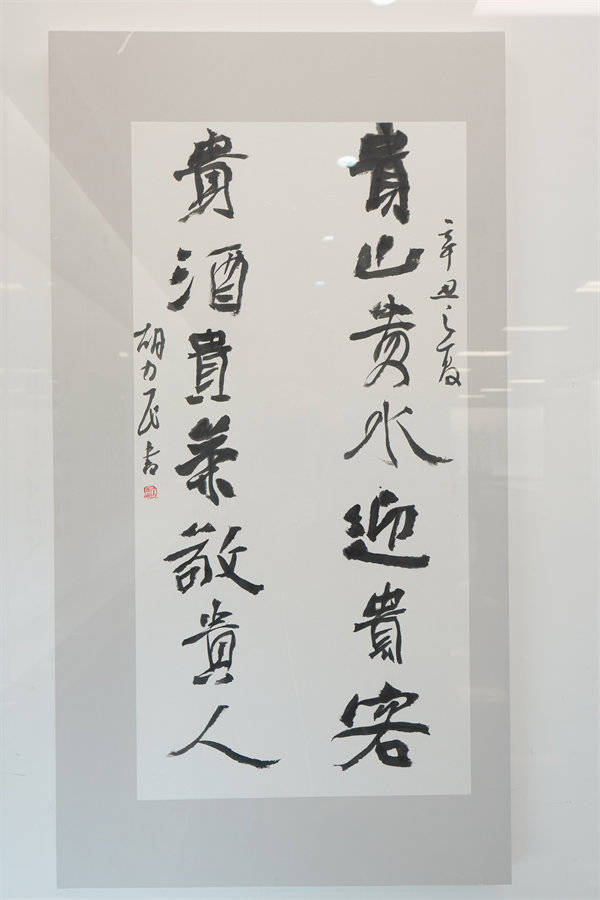 辛丑之夏
貴山貴水迎貴客
貴酒貴菜敬貴人
胡力民书